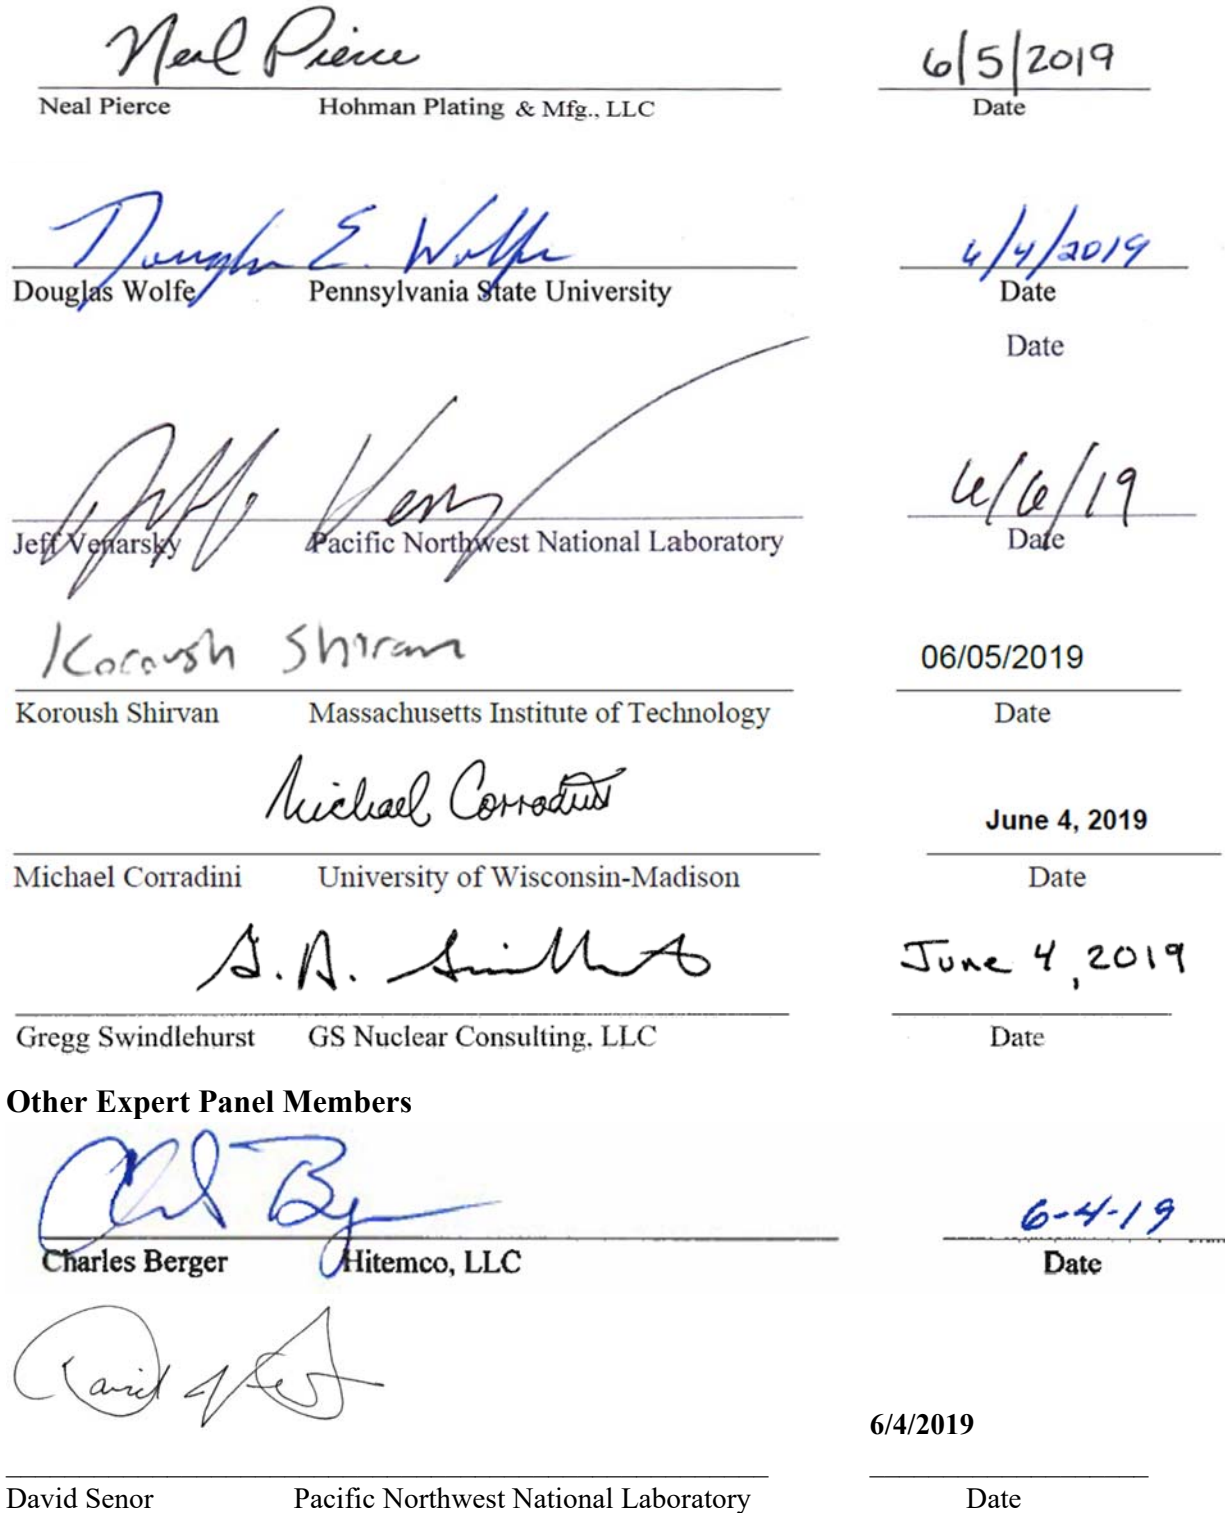 Neal Pierce 6/5/2019
Neal Pierce Hohman Plating & Mfg., LLC Date
Douglas E. Wolfe 6/4/2019
Douglas Wolfe Pennsylvania State University Date
Date
6/6/19
Jeff Venarsky Pacific Northwest National Laboratory Date
Koroush Shirvan 06/05/2019
Koroush Shirvan Massachusetts Institute of Technology Date
Michael Corradini June 4, 2019
Michael Corradini University of Wisconsin-Madison Date
June 4, 2019
Gregg Swindlehurst GS Nuclear Consulting, LLC Date
Other Expert Panel Members
6-4-19
Charles Berger Hitemco, LLC Date
David
6/4/2019
David Senor Pacific Northwest National Laboratory Date